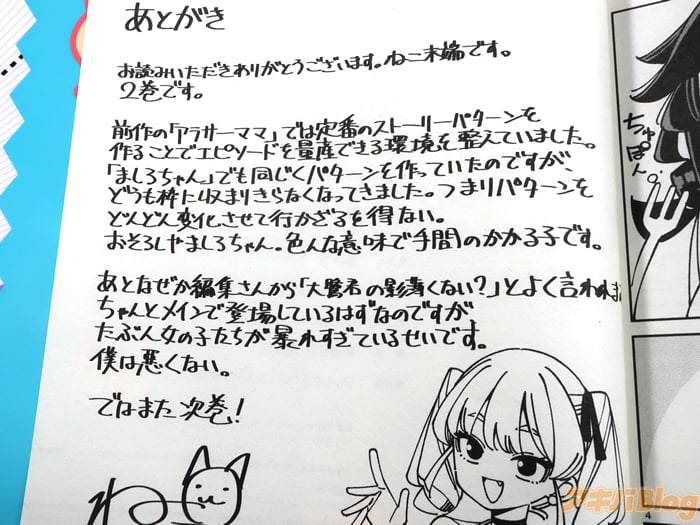 あとがき
お読みいただきありがとうございます。ねこ末端です。
2巻です。
前作の「アラサーママ」では定番のストーリーパターンを
作ることでエピソードを量産できる環境を整えていました。
「ましろちゃん」でも同じくパターンを作っていたのですが、
どうも枠に収まりきらなくなってきました。つまりパターンを
どんどん変化させて行かざるを得ない。
おそろしやましろちゃん。色んな意味で手間のかかる子です。
あとなぜか編集さんから「大鷲君の影薄くない?」とよく言われま
ちゃんとメインで登場しているはずなのですが
たぶん女の子たちが暴れすぎているせいです。
僕は悪くない。
ではまた次巻!
ねこ
ちゅぽん。
アキバBlog
4